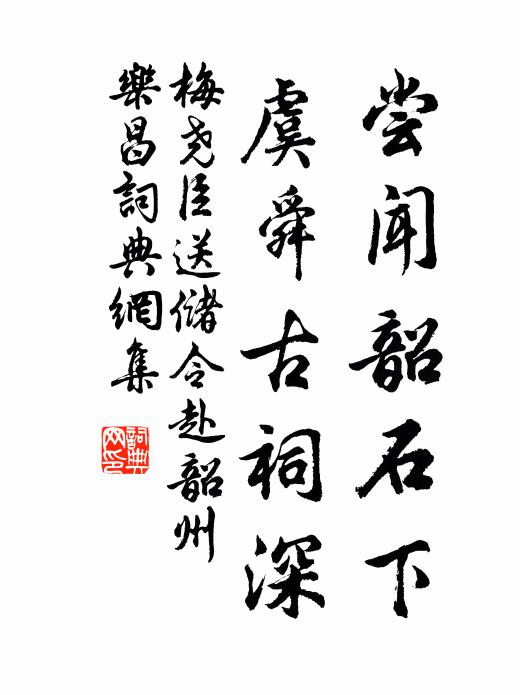 尝闻韶石下
虞舜古祠深
梅尧臣送储令赴韶州
樂昌詞典網集
詞典
网印